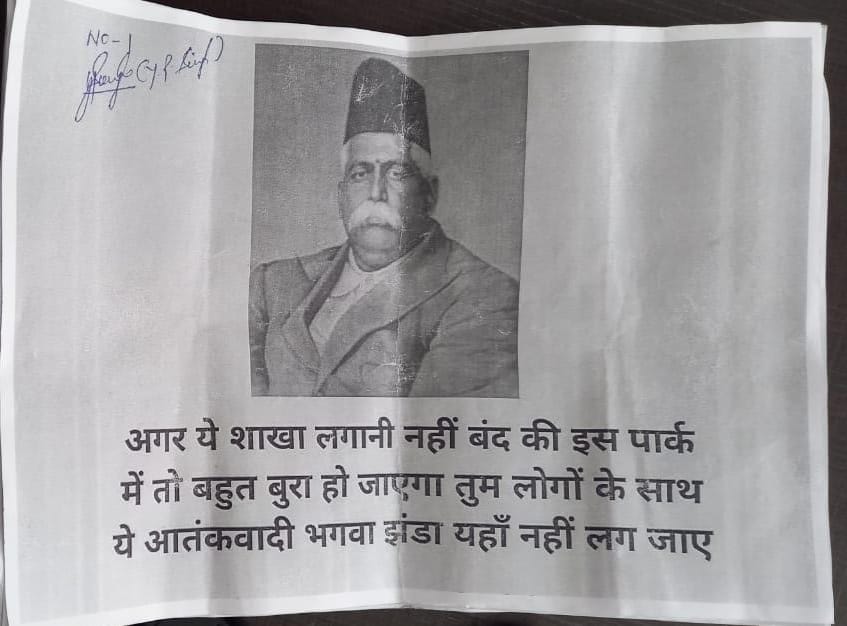 No-1
(Y P Singh)
अगर ये शाखा लगानी नहीं बंद की इस पार्क
में तो बहुत बुरा हो जाएगा तुम लोगों के साथ
ये आतंकवादी भगवा झंडा यहाँ नहीं लग जाए